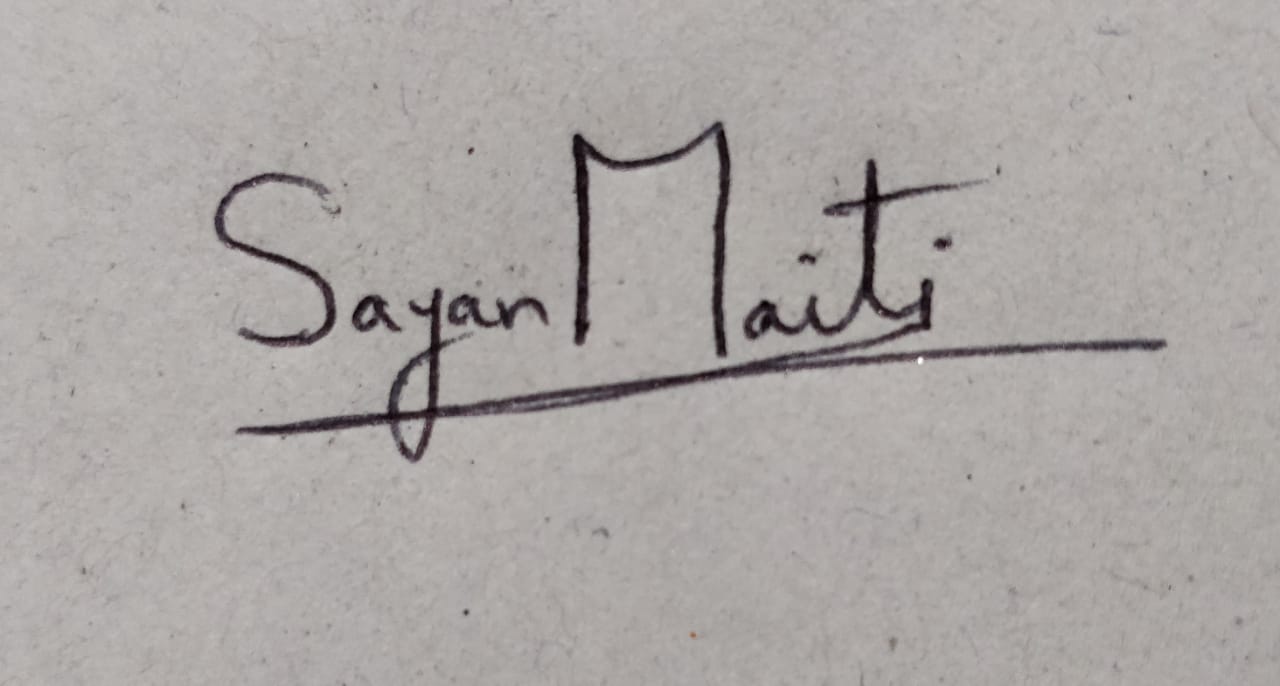 Sayan Maiti